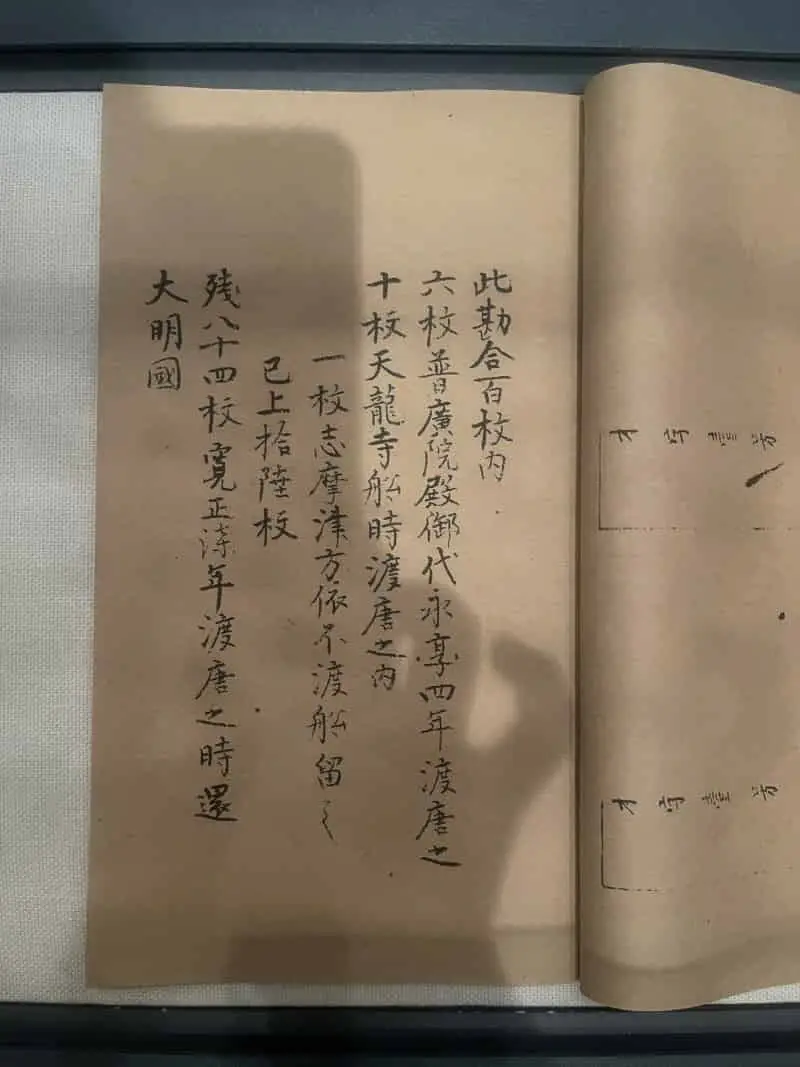 此勘合百枚内
六枚普廣院殿御代永享四年渡唐之
十枚天龍寺舩時渡唐之内
一枚志摩津方依不渡舩留之
已上拾陸枚
残八十四枚寛正柒年渡唐之時還
大明國